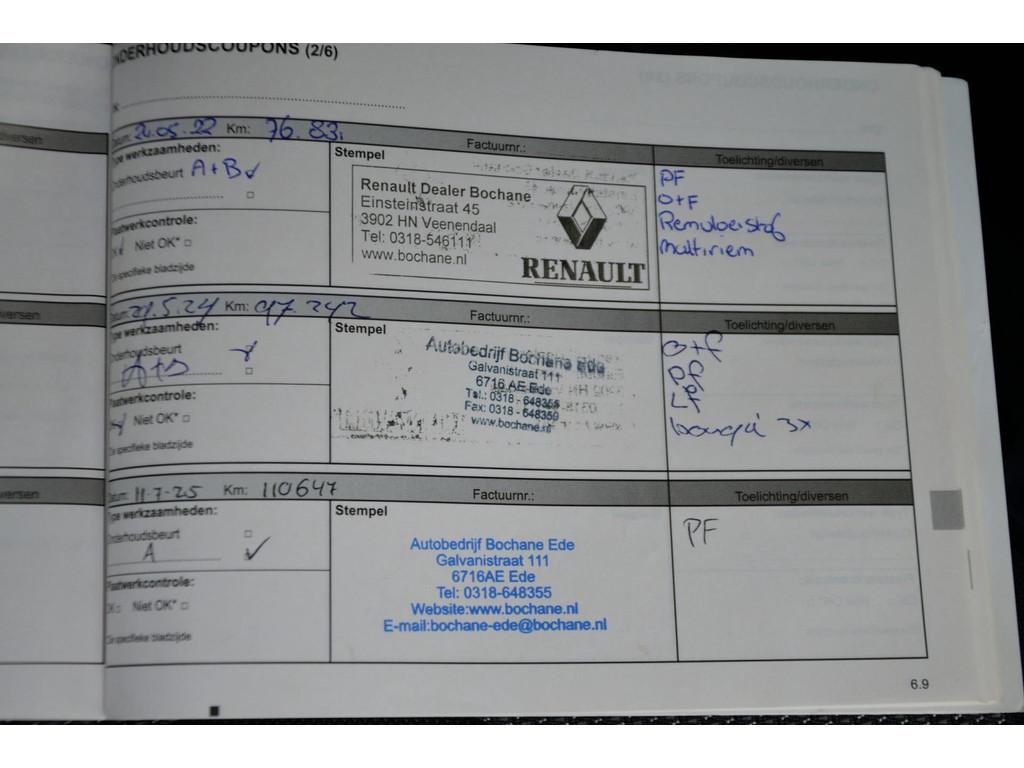 ONDERHOUDSCOUPONS (2/6)
Datum: 24.05.22 Km: 76.83
Factuurnr.:
Toelichting/diversen
Type werkzaamheden:
Onderhoudsbeurt A+B ✓
Plaatwerkcontrole:
Niet OK*
Zie specifieke bladzijde
Stempel
Renault Dealer Bochane
Einsteinstraat 45
3902 HN Veenendaal
Tel: 0318-546111
www.bochane.nl
RENAULT
PF
O+F
Remvloeistof
multiriem
Km: 97.242
Factuurnr.:
Toelichting/diversen
Type werkzaamheden:
Onderhoudsbeurt
Plaatwerkcontrole:
Niet OK*
Zie specifieke bladzijde
Stempel
Autobedrijf Bochane Ede
Galvanistraat 111
6716 AE Ede
Tel.: 0318 - 648355
Fax: 0318 - 648359
www.bochane.nl
O+F
PF
LF
bougie 3x
Datum: 11-7-25 Km: 110647
Factuurnr.:
Toelichting/diversen
Type werkzaamheden:
Onderhoudsbeurt
A ✓
Plaatwerkcontrole:
OK Niet OK*
Zie specifieke bladzijde
Stempel
Autobedrijf Bochane Ede
Galvanistraat 111
6716AE Ede
Tel: 0318-648355
Website:www.bochane.nl
E-mail:bochane-ede@bochane.nl
PF
6.9
diversen
diversen
diversen